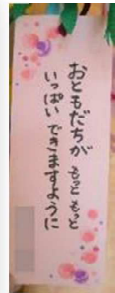 おともだちが もっと もっと
いっぱい できますように